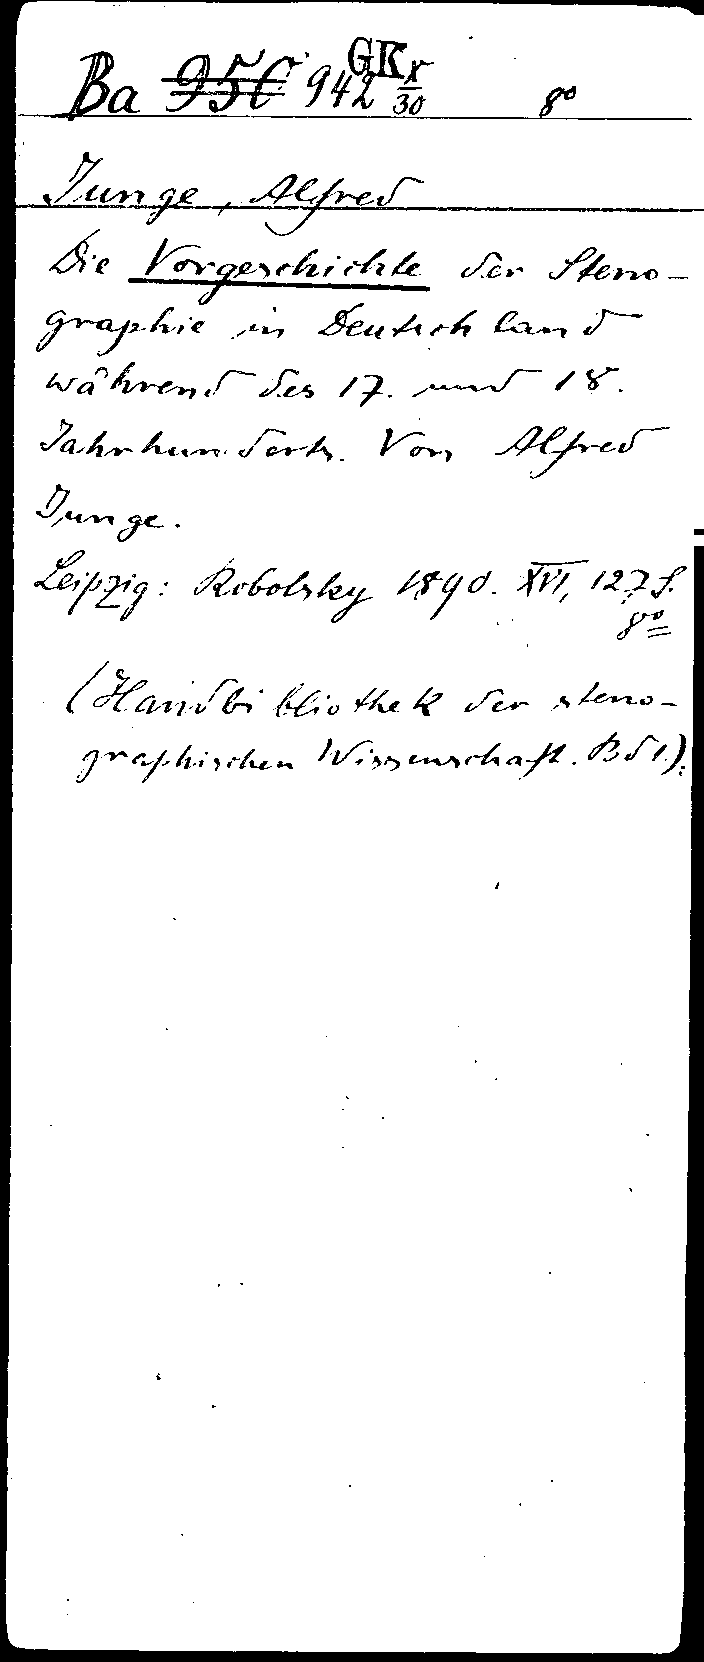 Ba 950 942 GK x/30 8°
Junge, Alfred
Die Vorgeschichte der Steno-
graphie in Deutschland
während des 17. und 18.
Jahrhunderts. Von Alfred
Junge.
Leipzig: Robolsky 1890. XVI, 127 S.
8°
(Handbibliothek der steno-
graphischen Wissenschaft. Bd 1.).